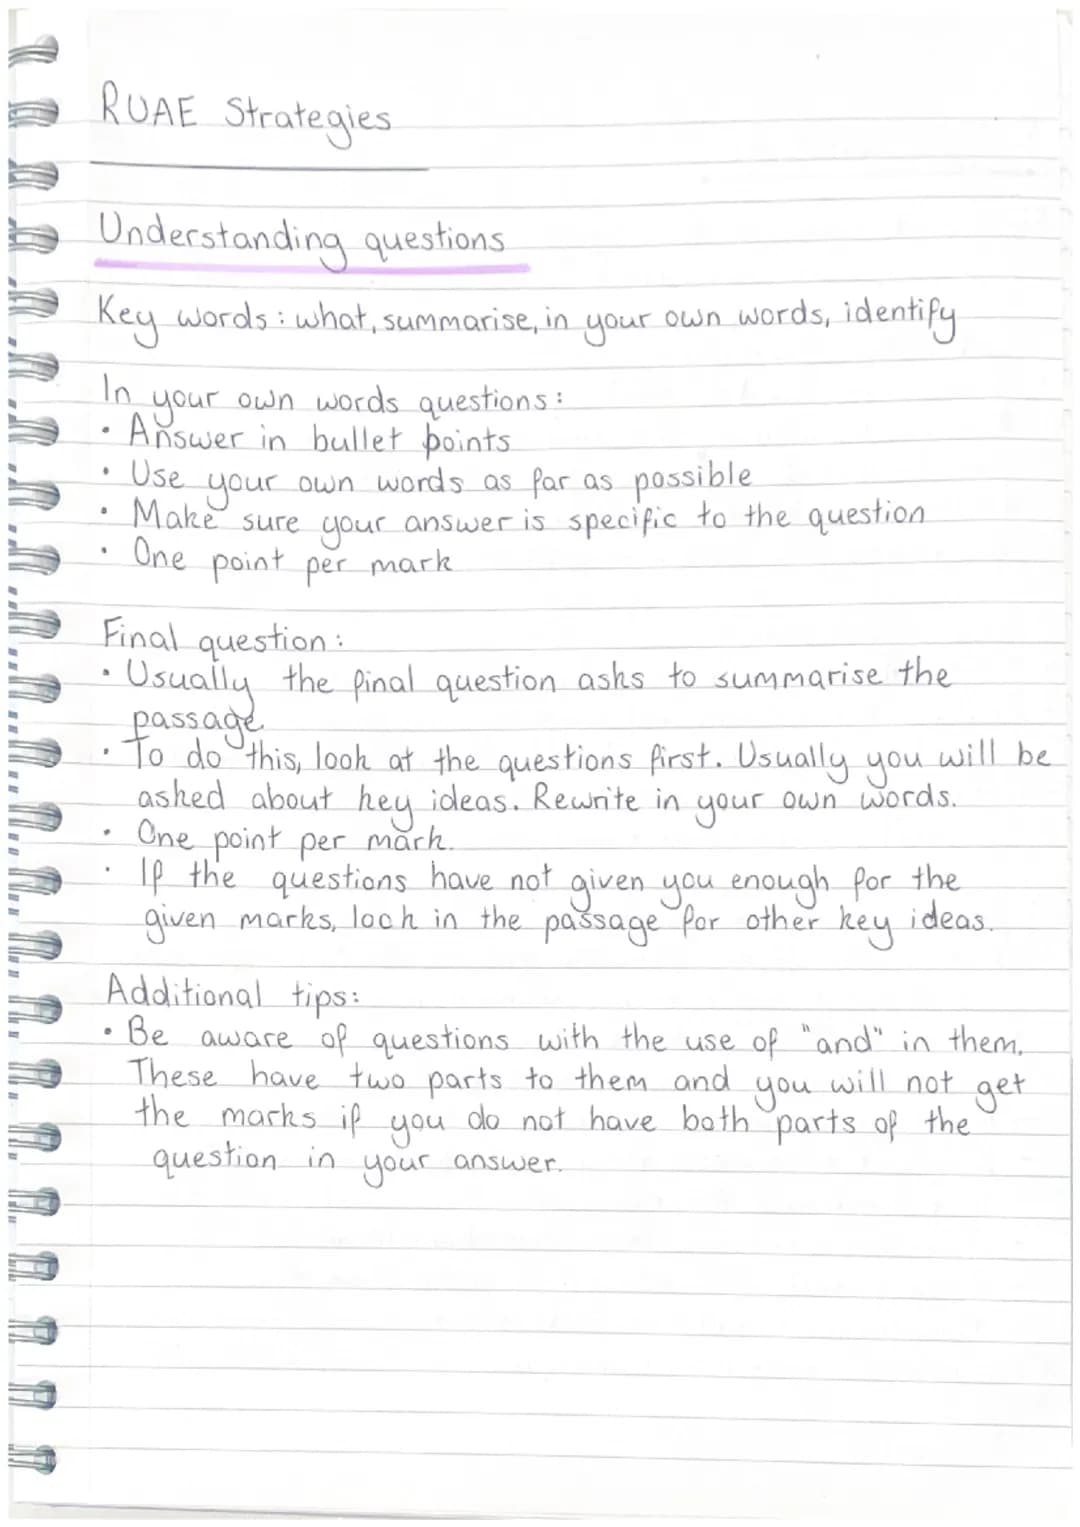 RUAE Strategies
Understanding questions
Key words: what, summarise, in your own words, identify
In your own words questions:
• Answer in bullet points
• Use your own words as far as possible
• Make sure your answer is specific to the question
• One point per mark
Final question:
• Usually the final question asks to summarise the
passage.
• To do this, look at the questions first. Usually you will be
asked about key ideas. Rewrite in your own words.
• One point per mark.
• If the questions have not given you enough for the
given marks, look in the passage for other key ideas.
Additional tips:
• Be aware of questions with the use of "and" in them.
These have two parts to them and you will not get
the marks if you do not have both parts of the
question in your answer.